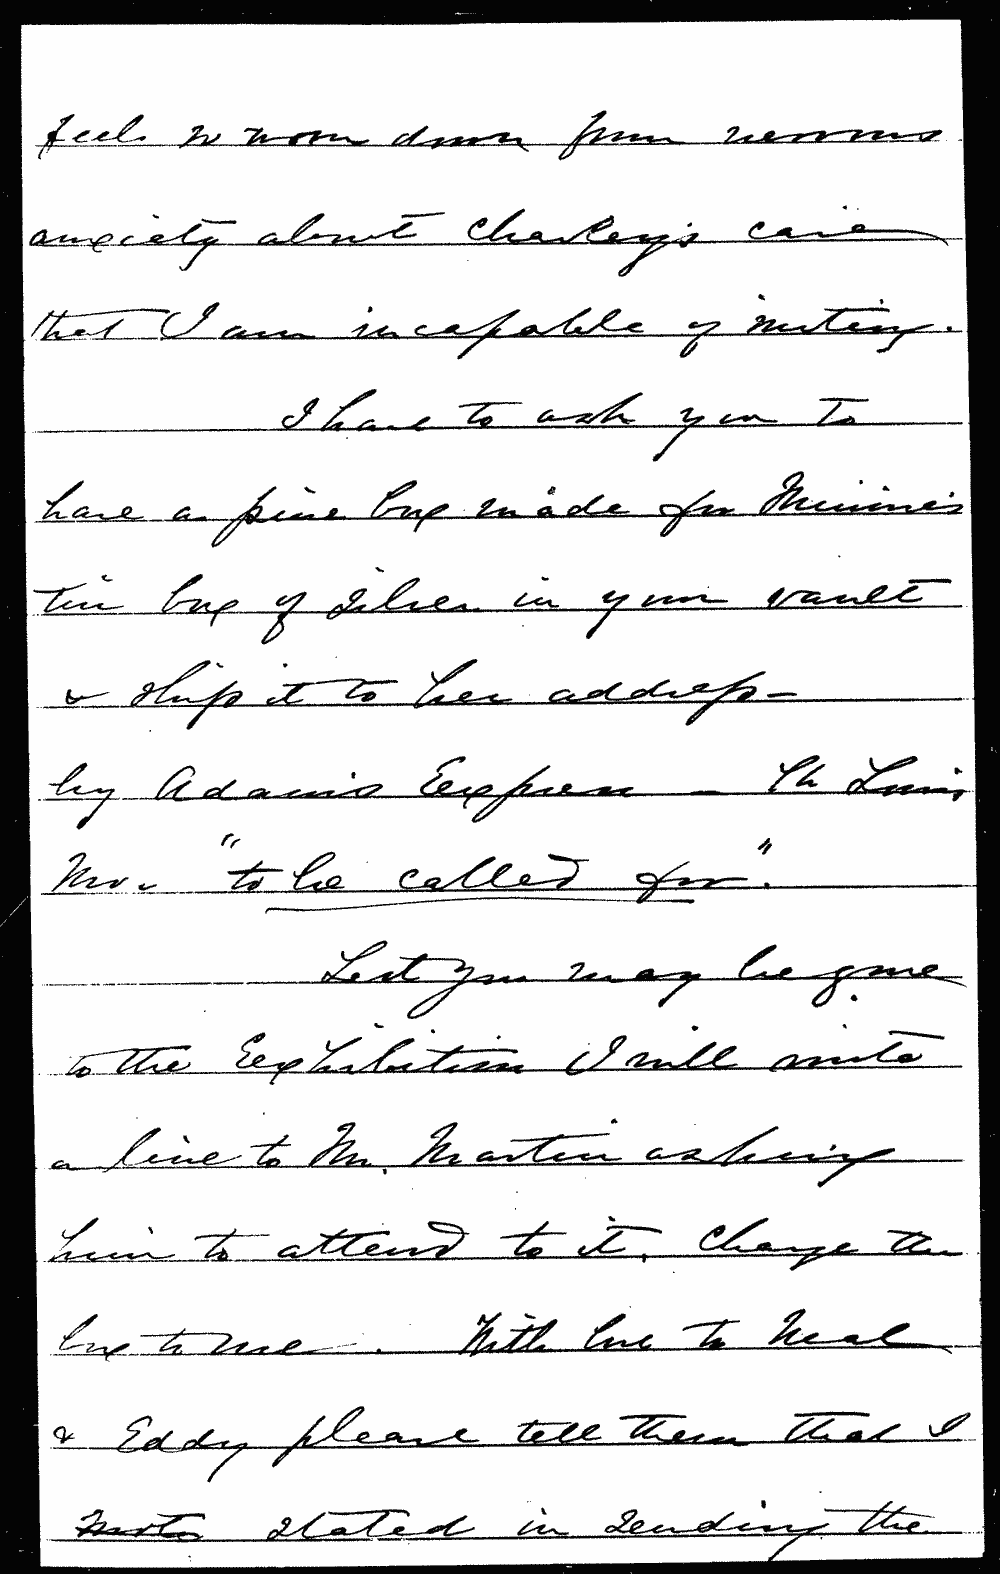 feel so worn down from nervous
anxiety about Charley's case
that I am incapable of writing.
I have to ask you to
have a pine box made for Minnie's
tin box of silver in your vault
& ship it to her address –
by Adams Express – St Louis
Mo. "to be called for".
Lest you may be gone
to the Exhibition I will write
a line to Mr. Martin asking
him to attend to it. Charge the
box to me. With love to Neal
& Eddy please tell them that I
wrote stated in sending the